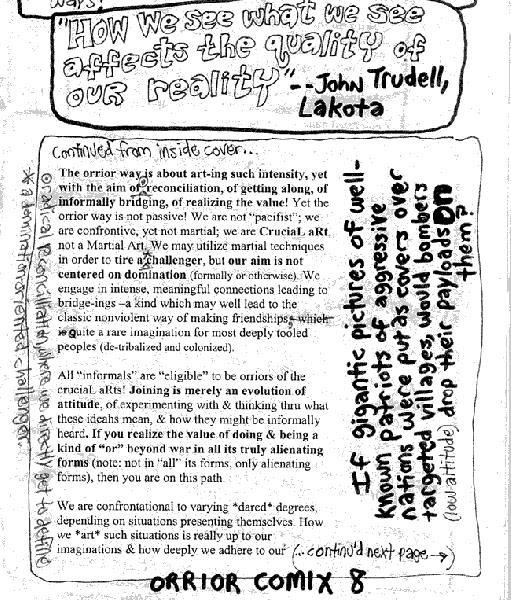 ways!
"How we see what we see
affects the quality of
our reality"--John Trudell,
Lakota
Continued from inside cover...
The orrior way is about art-ing such intensity, yet
with the aim of reconciliation, of getting along, of
informally bridging, of realizing the value! Yet the
orrior way is not passive! We are not "pacifist"; we
are confrontive, yet not martial; we are CruciaL aRt
not a Martial Art. We may utilize martial techniques
in order to tire a challenger, but our aim is not
centered on domination (formally or otherwise). We
engage in intense, meaningful connections leading to
bridge-ings –a kind which may well lead to the
classic nonviolent way of making friendships, which
is quite a rare imagination for most deeply tooled
peoples (de-tribalized and colonized).
All "informals" are "eligible" to be orriors of the
cruciaL aRts! Joining is merely an evolution of
attitude, of experimenting with & thinking thru what
these ideahs mean, & how they might be informally
heard. If you realize the value of doing & being a
kind of "or" beyond war in all its truly alienating
forms (note: not in "all" its forms, only alienating
forms), then you are on this path.
We are confrontational to varying *dared* degrees,
depending on situations presenting themselves. How
we *art* such situations is really up to our
imaginations & how deeply we adhere to our (...continu'd next page→)
radical reconciliation where we directly get to define
*a domination-reified challenger
If gigantic pictures of well-
known patriots of aggressive
nations were put as covers over
targeted villages, would bombers
(low altitude) drop their payloads on
them?
ORRIOR COMIX 8